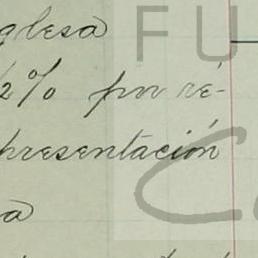 glesa
2% por re-
presentación
a
FU
C